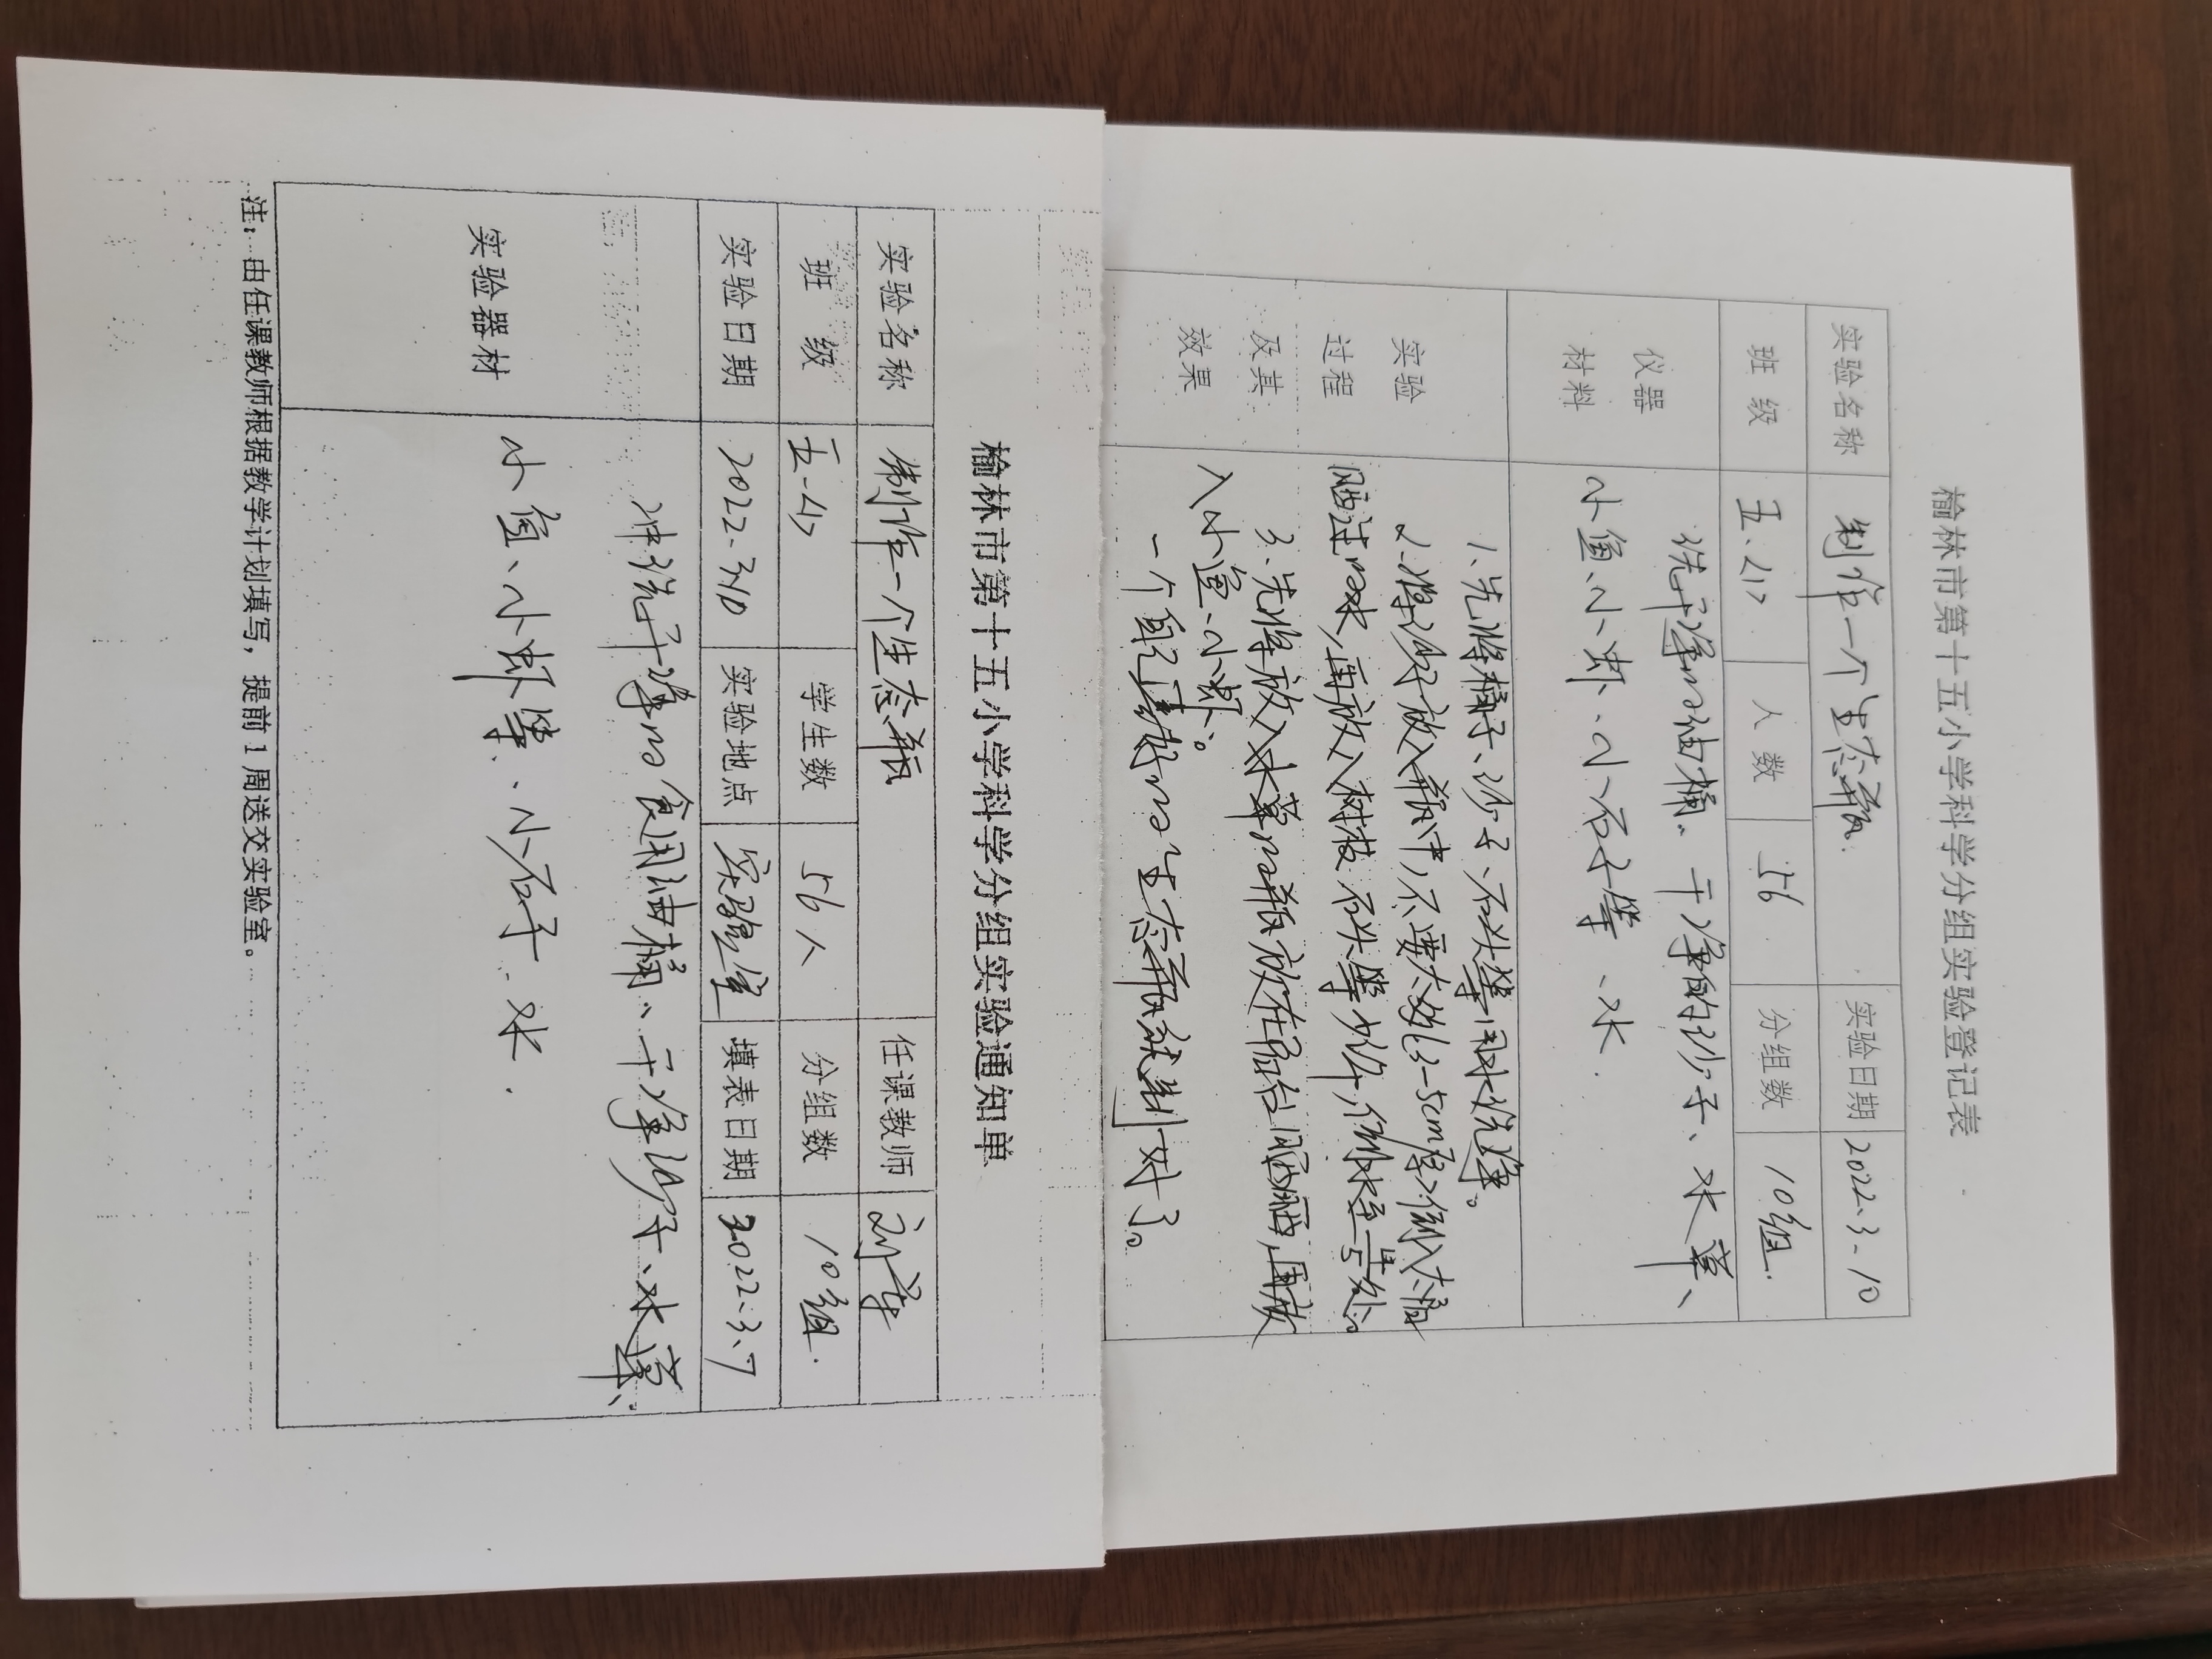 榆林市第十五小学科学分组实验登记表
实验名称 制作一个生态瓶 实验日期 2022.3.10
班级 人数 56 分组数 10组.
仪器 洗干净的油桶、干净的沙子、水草、
材料 小鱼、小虾、小石子等、水.
实验 1、先将桶子、沙子、石头等用水洗净。
过程 2、将沙子放入瓶中,不要太多3-5cm厚,倒入太阳
及其 晒过的水,再放入树枝、石头等少许,倒水至
效果 3、先将放入水草的瓶放在阳台晒晒,再放
入小鱼、小虾。
一个自己造的生态瓶就制好了。
榆林市第十五小学科学分组实验通知单
实验名称 制作一个生态瓶 任课教师
班级 学生数 56人 分组数 10组.
实验日期 2022.3.10 实验地点 实验室 填表日期 2022.3.7
实验器材 冲洗干净的食用油桶、干净沙子、水草、
小鱼、小虾等、小石子、水.
注:由任课教师根据教学计划填写,提前1周送交实验室。